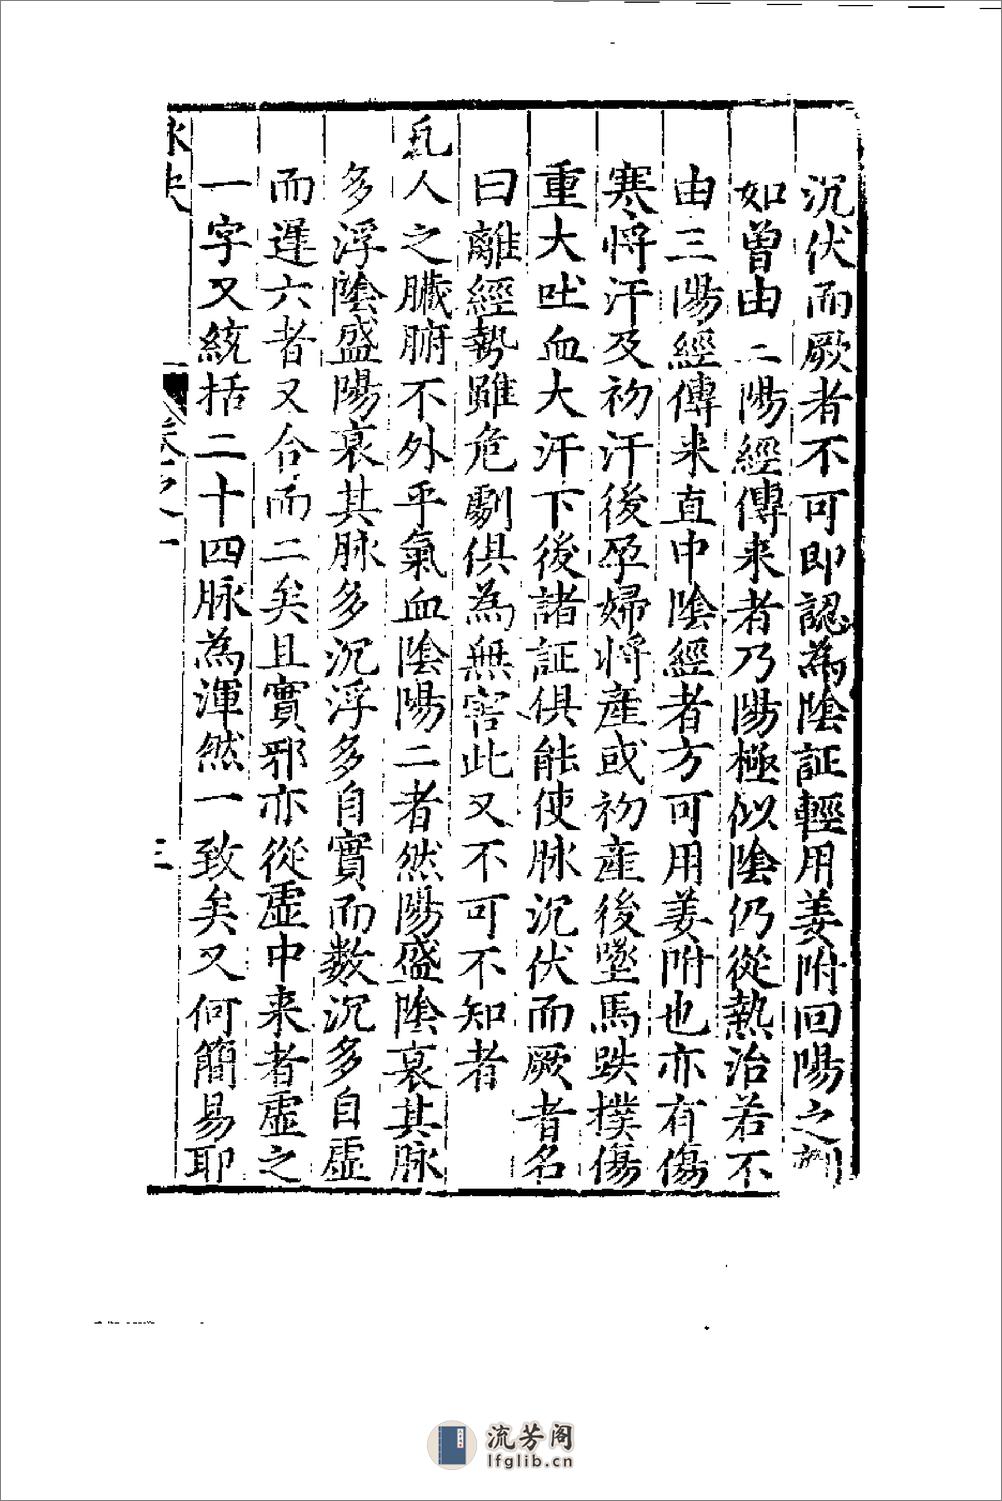 沉伏而厥者不可即認為陰証輕用姜附回陽之劑
如曾由二陽經傳来者乃陽極似陰仍從熱治若不
由三陽經傳来直中陰經者方可用姜附也亦有傷
寒將汗及初汗後孕婦將產或初產後墜馬跌撲傷
重大吐血大汗下後諸証俱能使脉沉伏而厥者名
曰離經勢雖危劇俱為無害此又不可不知者
凡人之臟腑不外乎氣血陰陽二者然陽盛陰衰其脉
多浮陰盛陽衰其脉多沉浮多自實而數沉多自虛
而遲六者又合而二矣且實邪亦從虛中来者虛之
一字又統括二十四脉為渾然一致矣又何簡易耶
脉夬
卷之一
三
流芳阁
lfglib.cn